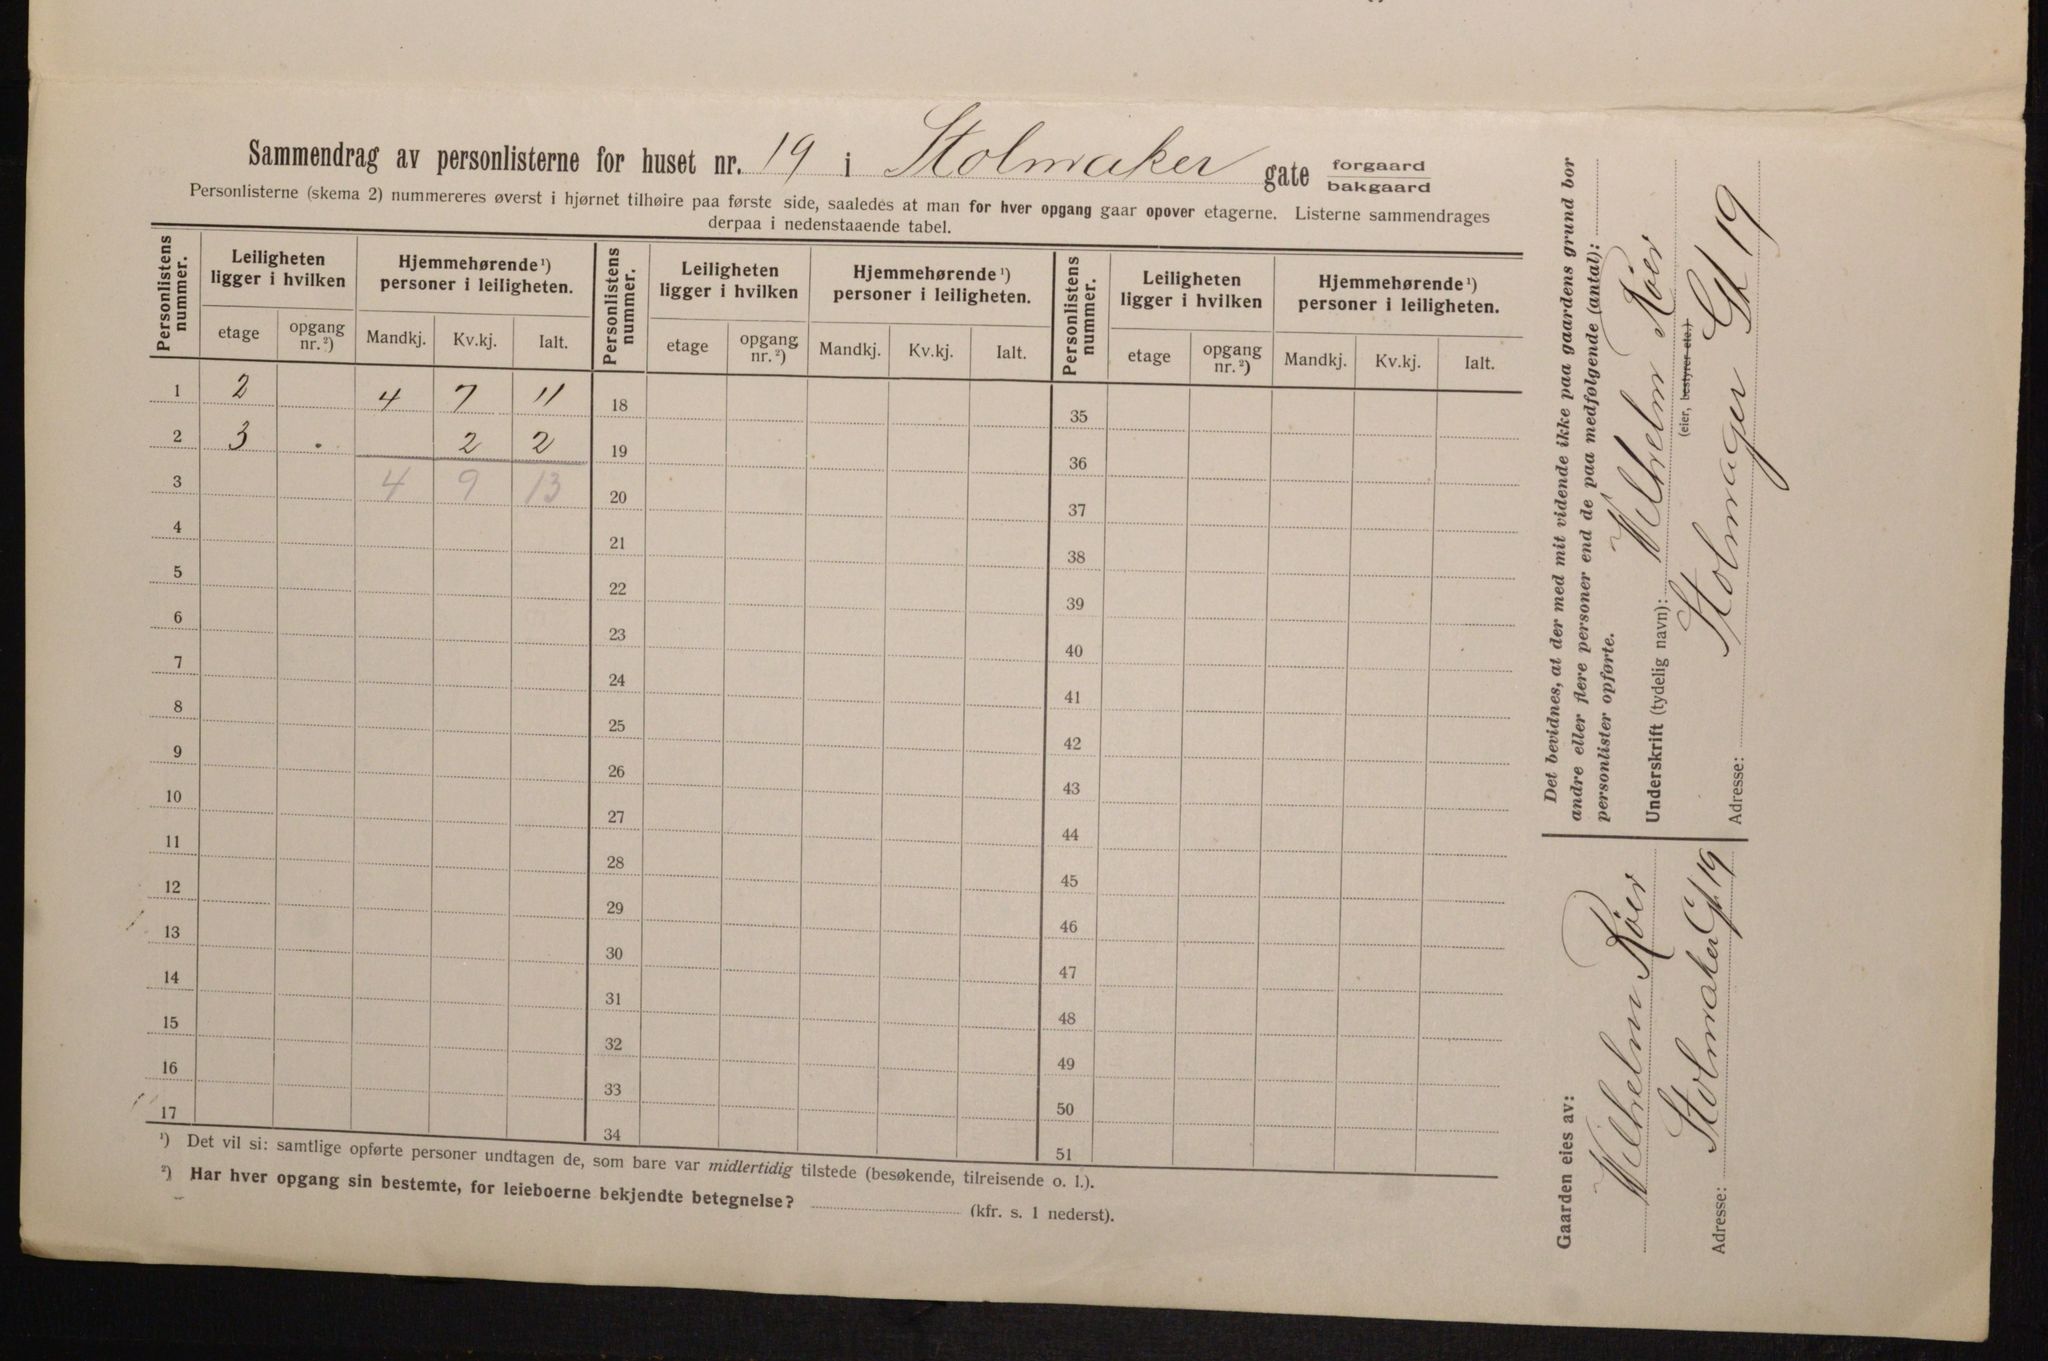 Sammendrag av personlisterne for huset nr. 19 i Stolmaker gate forgaard bakgaard
Personlisterne (skema 2) nummereres øverst i hjørnet tilhøire paa første side, saaledes at man for hver opgang gaar opover etagerne. Listerne sammendrages
derpaa i nedenstaaende tabel.
Personlistens nummer. Leiligheten ligger i hvilken Hjemmehørende¹) personer i leiligheten. Personlistens nummer. Leiligheten ligger i hvilken Hjemmehørende¹) personer i leiligheten. Personlistens nummer. Leiligheten ligger i hvilken Hjemmehørende¹) personer i leiligheten.
etage opgang nr.²) Mandkj. Kv.kj. Ialt. etage opgang nr.²) Mandkj. Kv.kj. Ialt. etage opgang nr.²) Mandkj. Kv.kj. Ialt.
1 2 4 7 11 18 35
2 3 . 2 2 19 36
3 4 9 13 20 37
4 21 38
5 22 39
6 23 40
7 24 41
8 25 42
9 26 43
10 27 44
11 28 45
12 29 46
13 30 47
14 31 48
15 32 49
16 33 50
17 34 51
¹) Det vil si: samtlige opførte personer undtagen de, som bare var midlertidig tilstede (besøkende, tilreisende o. l.).
²) Har hver opgang sin bestemte, for leieboerne bekjendte betegnelse? (kfr. s. 1 nederst).
Det bevidnes, at der med mit vidende ikke paa gaardens grund bor
andre eller flere personer end de paa medfølgende (antal):
personlister opførte.
Underskrift (tydelig navn): Wilhelm Röer
(eier, bestyrer etc.)
Adresse: Stolmager Gt 19
Gaarden eies av:
Wilhelm Röer
Adresse: Stolmaker Gt. 19